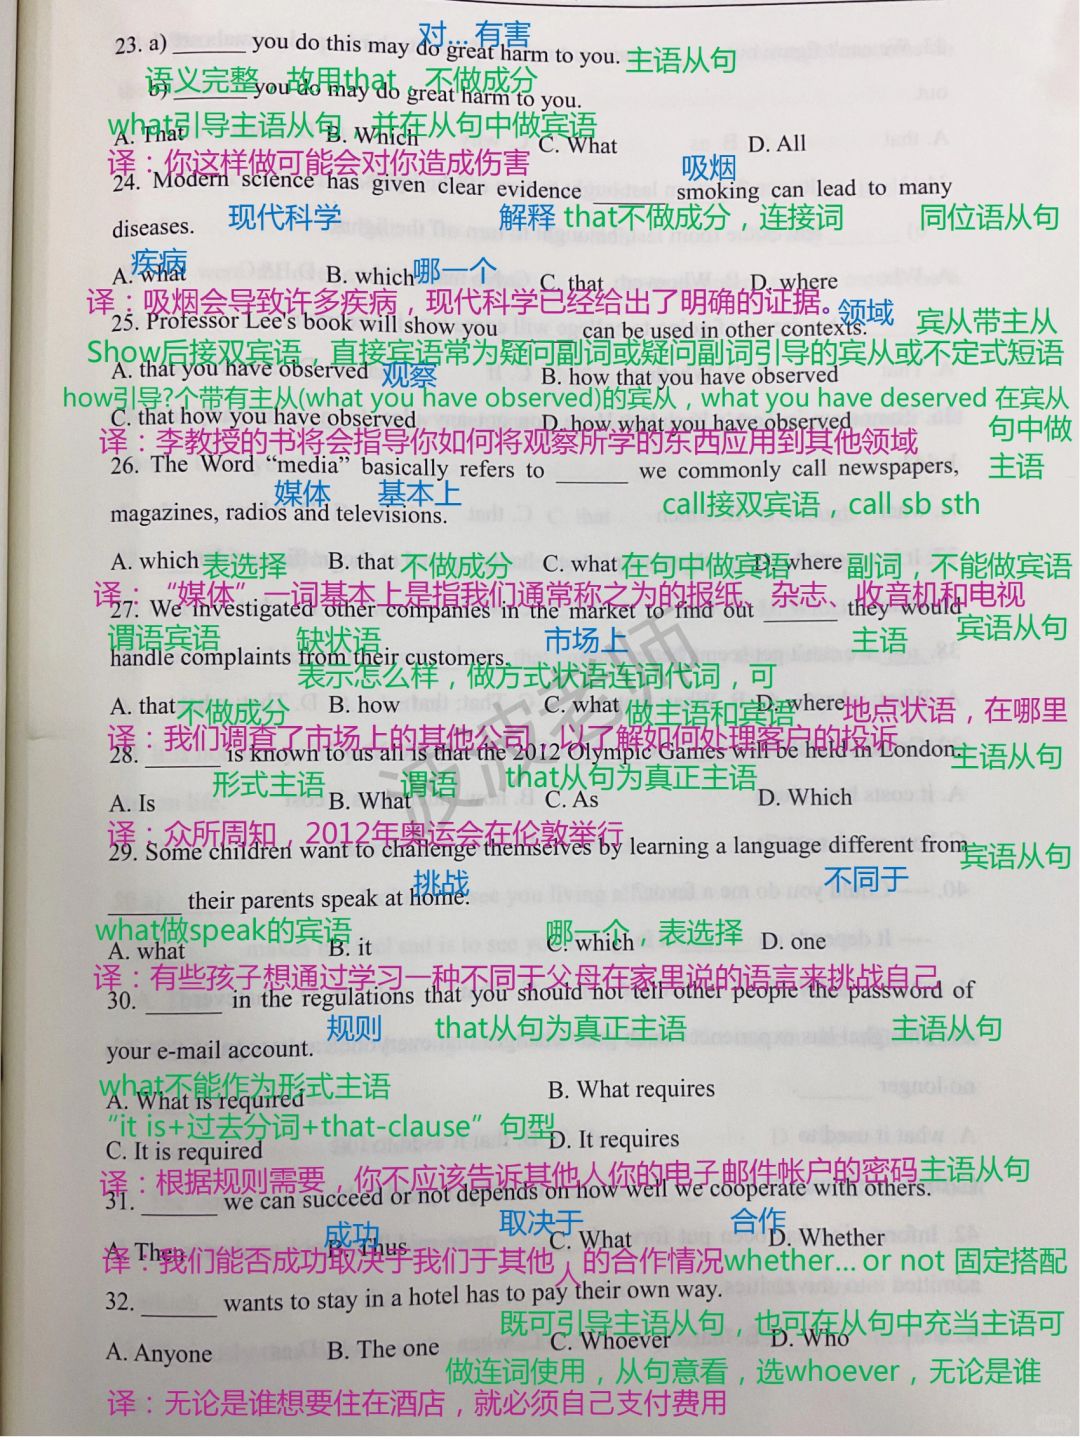 对...有害
23. a) ______ you do this may do great harm to you. 主语从句
语义完整，故用that，不做成分
b) ______ you do may do great harm to you.
what引导主语从句，并在从句中做宾语
A. That B. Which C. What D. All
译：你这样做可能会对你造成伤害
吸烟
24. Modern science has given clear evidence ______ smoking can lead to many
现代科学 解释 that不做成分，连接词 同位语从句
diseases.
疾病 哪一个
A. what B. which C. that D. where
译：吸烟会导致许多疾病，现代科学已经给出了明确的证据。
领域 宾从带主从
25. Professor Lee's book will show you ______ can be used in other contexts.
Show后接双宾语，直接宾语常为疑问副词或疑问副词引导的宾从或不定式短语
A. that you have observed 观察 B. how that you have observed
how引导?个带有主从(what you have observed)的宾从，what you have deserved 在宾从
C. that how you have observed D. how what you have observed 句中做
译：李教授的书将会指导你如何将观察所学的东西应用到其他领域
26. The Word “media” basically refers to ______ we commonly call newspapers, 主语
媒体 基本上 call接双宾语，call sb sth
magazines, radios and televisions.
A. which 表选择 B. that 不做成分 C. what 在句中做宾语 D. where 副词，不能做宾语
译：“媒体”一词基本上是指我们通常称之为的报纸、杂志、收音机和电视
27. We investigated other companies in the market to find out ______ they would 宾语从句
谓语宾语 缺状语 市场上 主语
handle complaints from their customers.
表示怎么样，做方式状语连词代词，可
A. that 不做成分 B. how C. what 做主语和宾语 D. where 地点状语，在哪里
译：我们调查了市场上的其他公司，以了解如何处理客户的投诉
28. ______ is known to us all is that the 2012 Olympic Games will be held in London. 主语从句
形式主语 谓语 that从句为真正主语
A. Is B. What C. As D. Which
译：众所周知，2012年奥运会在伦敦举行
29. Some children want to challenge themselves by learning a language different from 宾语从句
挑战 不同于
______ their parents speak at home.
what做speak的宾语 哪一个，表选择
A. what B. it C. which D. one
译：有些孩子想通过学习一种不同于父母在家里说的语言来挑战自己
30. ______ in the regulations that you should not tell other people the password of
规则 that从句为真正主语 主语从句
your e-mail account.
what不能作为形式主语
A. What is required B. What requires
“it is+过去分词+that-clause” 句型
C. It is required D. It requires
译：根据规则需要，你不应该告诉其他人你的电子邮件帐户的密码 主语从句
31. ______ we can succeed or not depends on how well we cooperate with others.
成功 取决于 合作
A. Then B. Thus C. What D. Whether
译：我们能否成功取决于我们于其他人的合作情况 whether... or not 固定搭配
32. ______ wants to stay in a hotel has to pay their own way.
既可引导主语从句，也可在从句中充当主语可
A. Anyone B. The one C. Whoever D. Who
做连词使用，从句意看，选whoever，无论是谁
译：无论是谁想要住在酒店，就必须自己支付费用
波波老师